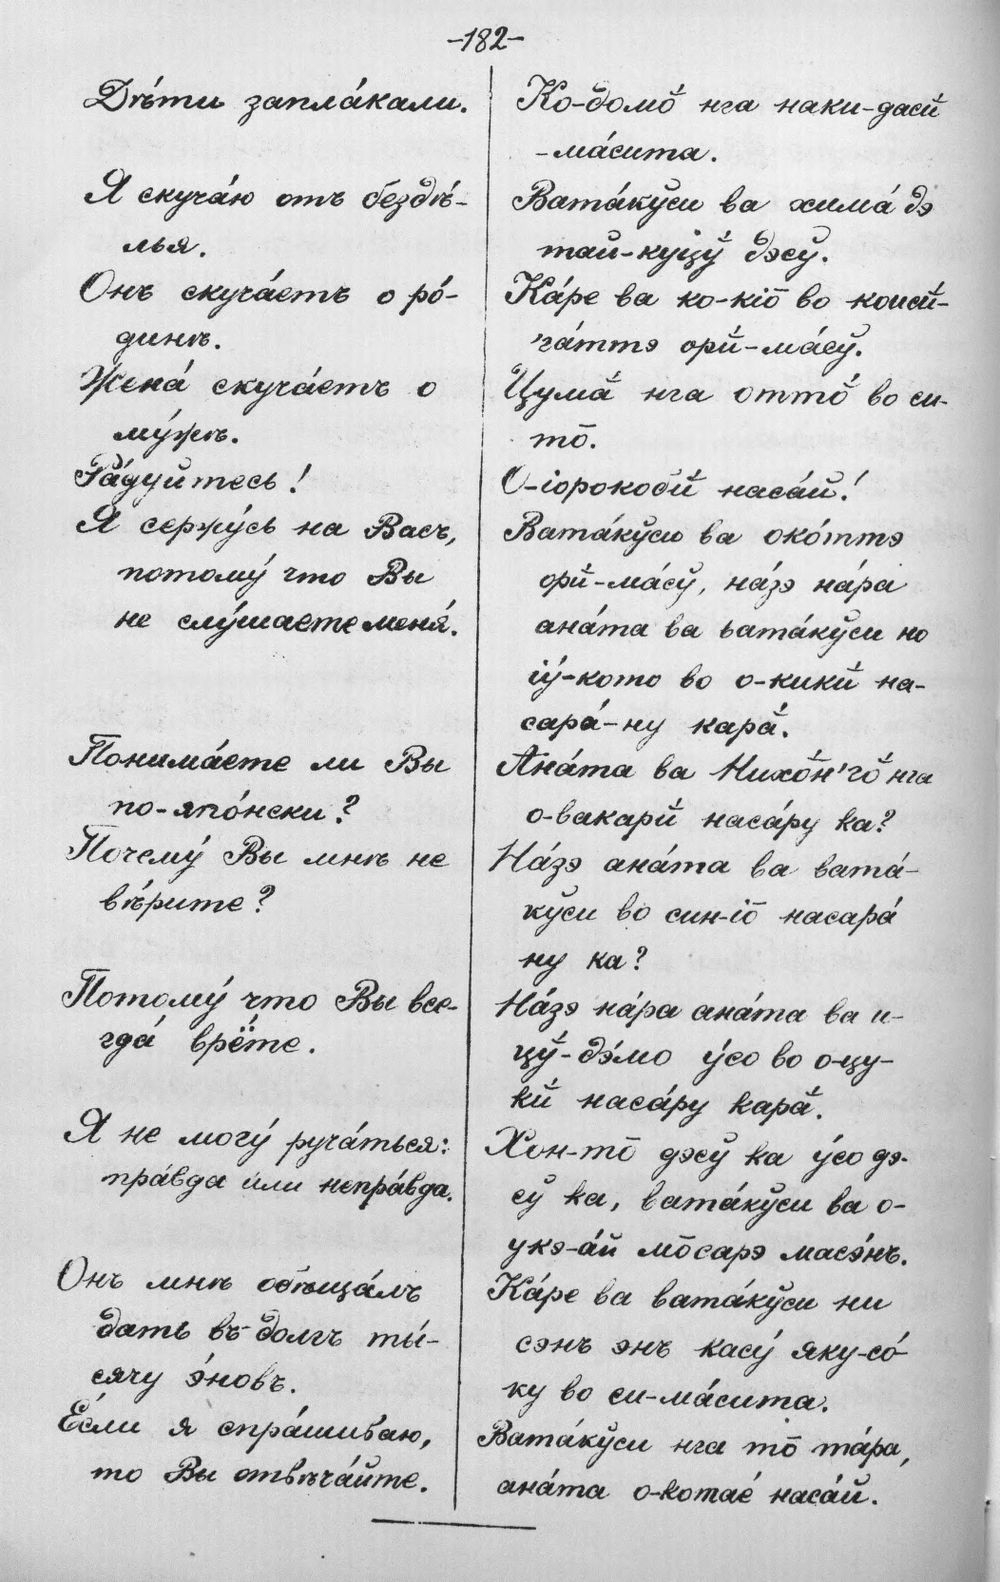 -182-
Дѣ́ти запла́кали.
Я скуча́ю отъ бездѣ́-
лья.
Онъ скуча́етъ о ро́-
динѣ.
Жена́ скуча́етъ о
му́жѣ.
Ра́дуйтесь!
Я сержу́сь на Васъ,
потому́ что Вы
не слу́шаете меня́.
Понима́ете ли Вы
по-япо́нски?
Почему́ Вы мнѣ не
вѣ́рите?
Потому́ что Вы все-
гда́ врёте.
Я не могу́ руча́ться:
пра́вда или непра́вда.
Онъ мнѣ обѣща́лъ
дать въ долгъ ты́-
сячу э́новъ.
Е́сли я спра́шиваю,
то Вы отвѣча́йте.
Ко-домо̄́ нга наки-дасӣ́
-ма́сита.
Вата́кўси ва хима́ дэ
тай-куцӯ́ дэсў.
Ка́ре ва ко-кіо̄ во коисӣ́-
'га́ттэ орӣ́-ма́сў.
Цума̄́ нга отто̄́ во си-
то̄.
О-іорокобӣ́ наса́й!
Вата́кўси ва око́ттэ
орӣ́-ма́сў, на́зэ на́ра
ана́та ва вата́кўси но
іӯ́-кото во о-кикӣ́ на-
сара́-ну кара̄́.
Ана́та ва Нихо̄́н'го̄́ нга
о-вакарӣ́ наса́ру ка?
На́зэ ана́та ва вата́-
кўси во син-іо̄ насара́
ну ка?
На́зэ на́ра ана́та ва и-
цӯ́-дэ́мо у́со во о-цу-
кӣ́ наса́ру кара̄́.
Хон-то̄ дэсў ка у́со дэ-
сў ка, вата́кўси ва о-
укэ-а́й мо̄сарэ масэ́нъ.
Ка́ре ва вата́кўси ни
сэнъ энъ касу́ яку-со́-
ку во си-ма́сита.
Вата́кўси нга то̄ та́ра,
ана́та о-котаэ́ наса́й.